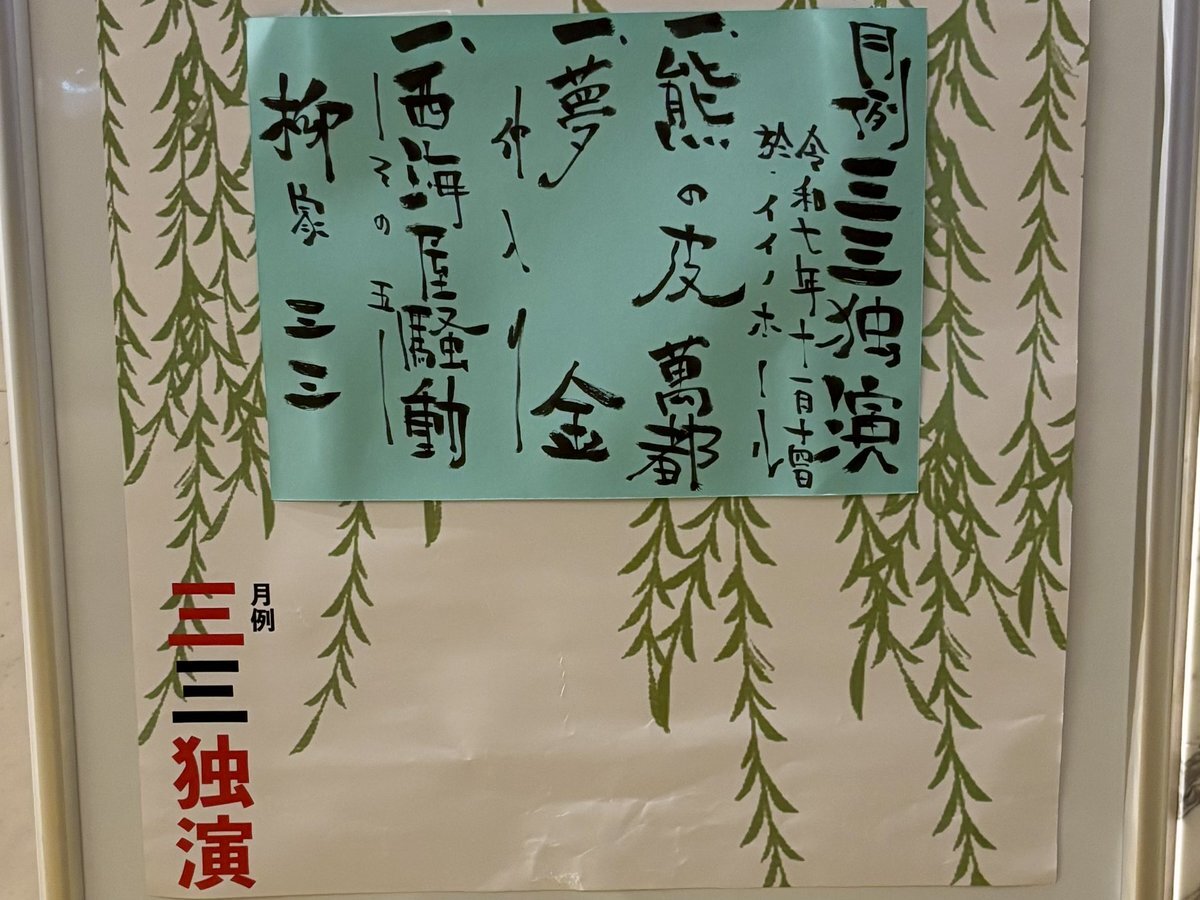 月例三三独演
令和七年十一月十四日
於・イイノホール
一、熊の皮 萬都
一、夢金
仲入り
一、西海屋騒動
―その五―
柳家三三
月例
三三独演